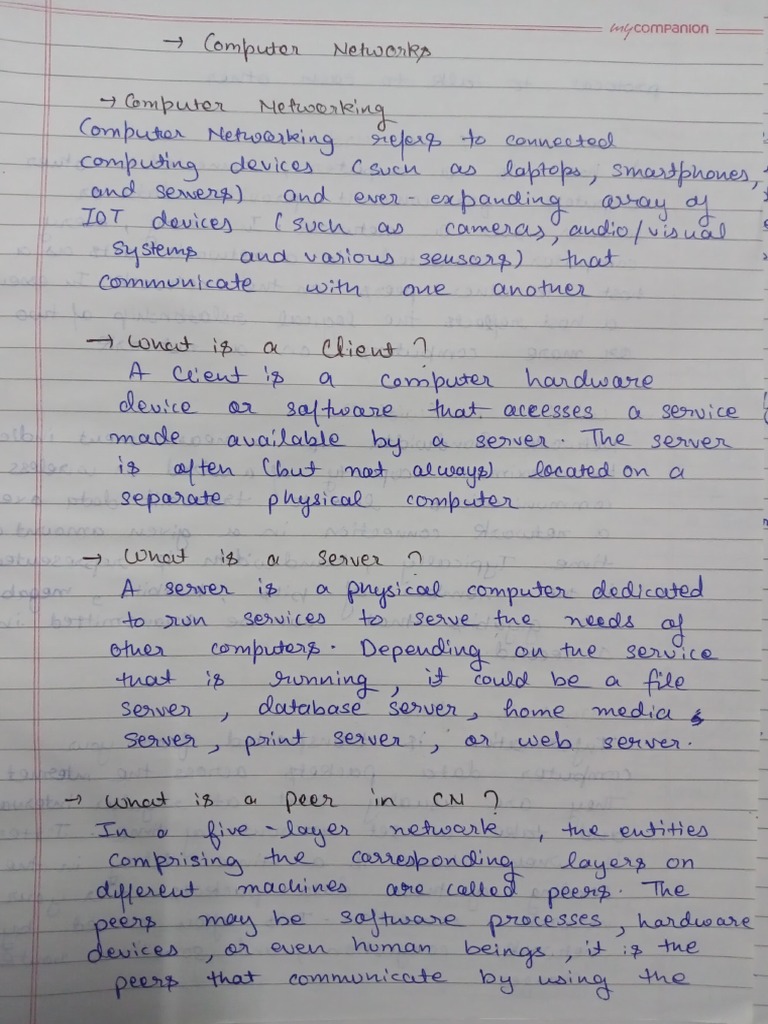 mycompanion
→ Computer Networks
→ Computer Networking
Computer Networking refers to connected
computing devices (such as laptops, smartphones,
and servers) and ever-expanding array of
IOT devices (such as cameras, audio/visual
systems and various sensors) that
communicate with one another
→ What is a Client?
A Client is a computer hardware
device or software that accesses a service
made available by a server. The server
is often (but not always) located on a
separate physical computer
→ What is a server?
A server is a physical computer dedicated
to run services to serve the needs of
other computers. Depending on the service
that is running, it could be a file
server, database server, home media
server, print server, or web server.
→ What is a peer in CN?
In a five-layer network, the entities
comprising the corresponding layers on
different machines are called peers. The
peers may be software processes, hardware
devices, or even human beings, it is the
peers that communicate by using the